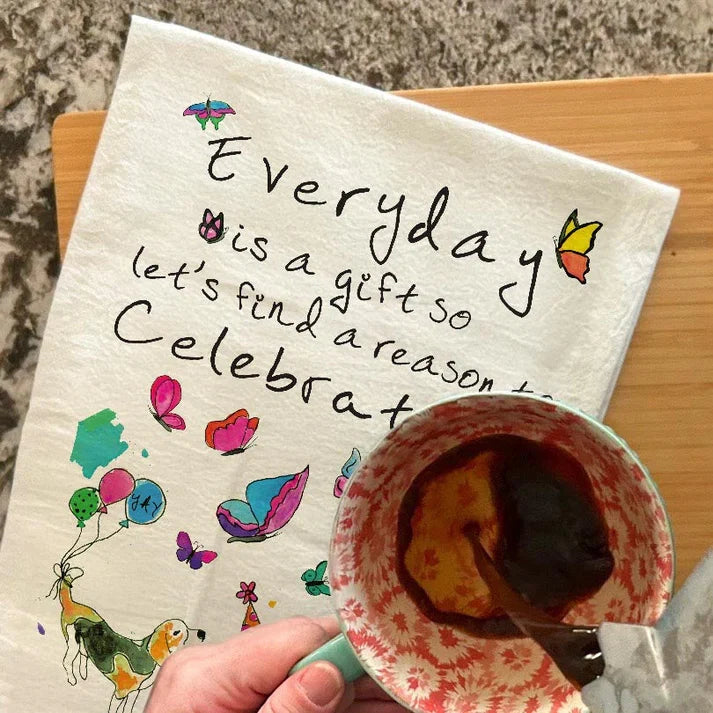 Everyday
is a gift so
let's find a reason to
Celebrat